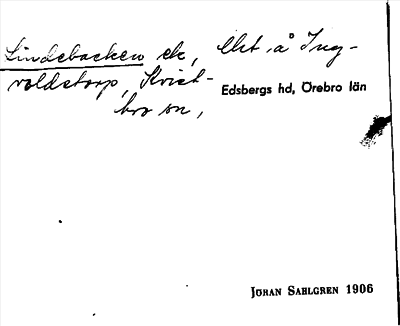 Lindebacken ek, lht å Ing-
valdstorp, Kvist-
bro sn,
Edsbergs hd, Örebro län
JÖRAN SAHLGREN 1906